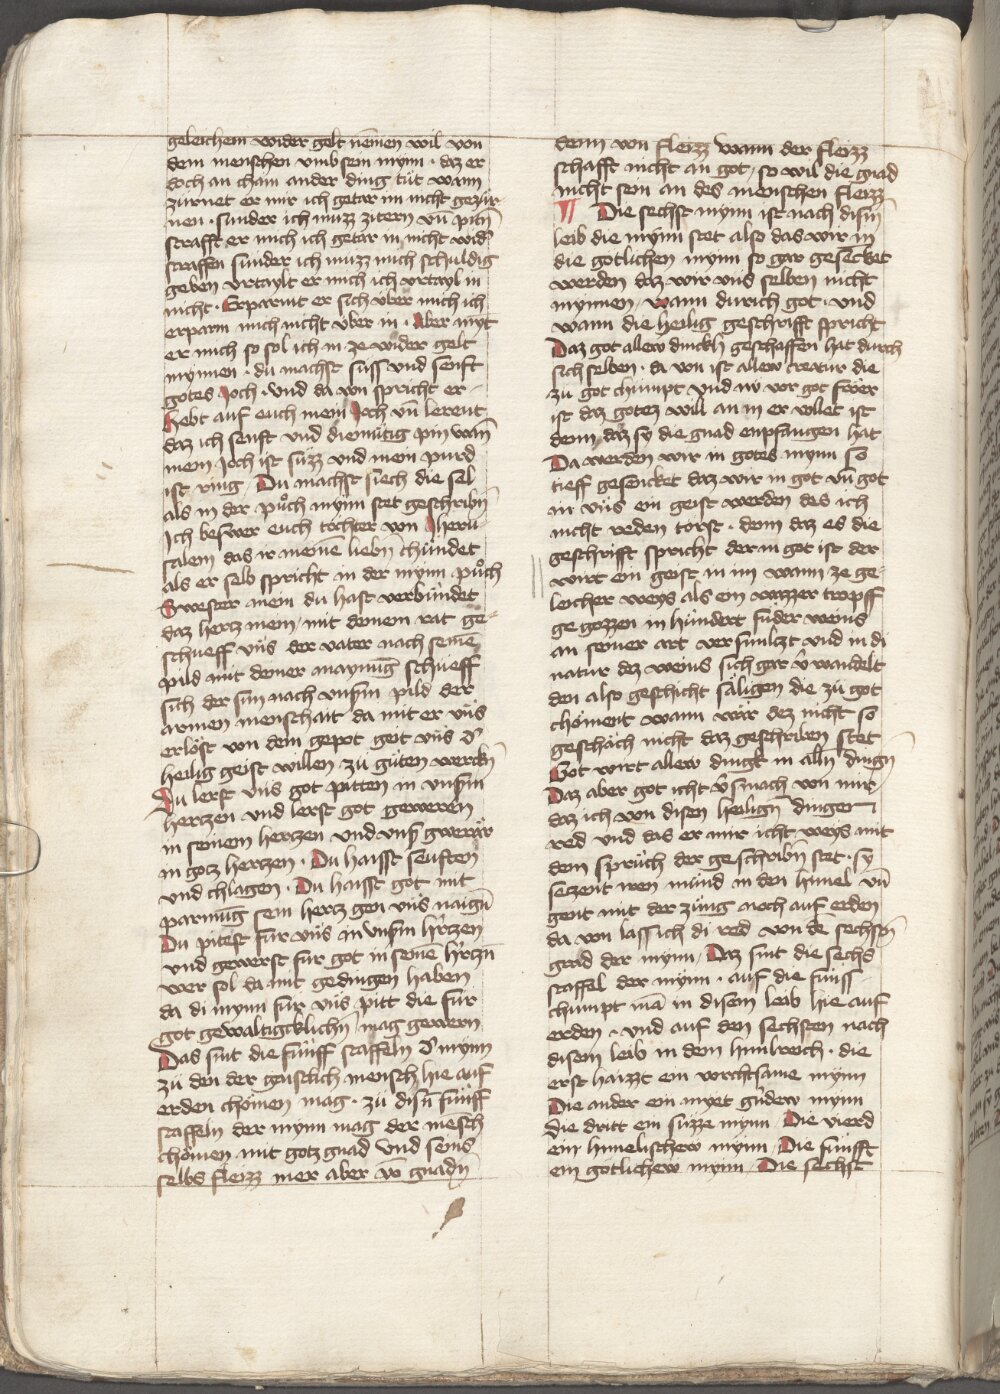 geleichem wider gelt nemen wil von
dem menschen vmb sein mynn · daz er
doch an chain ander ding tüt wann
zürnet er mir ich getar im nicht gezür-
nen · sunder ich muzz zitern vn̄ pitn̄
strafft er mich ich getar in nicht wid͛
straffen sunder ich muzz mich schuldig
geben vrtaylt er mich ich vrtayl in
nicht · Erparmt er sich vber mich ich
erparm mich nicht vber in · Aber mynt
er mich so sol ich in ze wider gelt
mynnen · du machst süss vnd senft
gotes Joch · vnd da von spricht er
hebt auf euch mein Joch vn̄ lerent
daz ich senft vnd diemütig pin wan̄
mein Joch ist süzz vnd mein purd
ist ring / Du machst siech die sel
als in der pů̊ch mynn stet geschribn̄
Ich beswer euch töchter von Jheru-
salem das ir meine͂ liebn̄ chündet
als er selb spricht in der mynn půch
Swester mein du hast verbundet
daz hertz mein / mit deinem rat ge-
schueff vns der vater nach seine͂
pild mit deiner maynu͂g schueff
sich der sun nach vnsm̄ pild der
armen menschait da mit er vns
erlöst von dem gepot geit vns d͛
heilig geist willen zu güten werckn̄
Du lerst vns got pitten in vnsm̄
hertzen vnd lerst got geweren
in seinem hertzen vnd vnser gwerär
in gotz hertzen · Du haisst seuften
vnd chlagen · Du haisst got mit
parmu͂g sein hertz gen vns naign̄
Du pitest für vns in vnsm̄ hertzen
vnd gewerst für got in seine͂ hertzn̄
wer sol da mit gedingen haben
da di mynn für vns pitt die für
got gewaltigcklichn̄ mag gewern
Das sint die fünff staffeln d͛ mynn
zü den der geistlich mensch hie auf
erden chömen mag · zü disn̄ fünff
staffeln der mynn mag der me͂sch
chömen mit gotz gnad vnd seins
selbs fleizz mer aber vo gnadn̄
denn von fleizz wann der fleizz
schafft nicht an got / so wil die gnad
nicht sein an des menschen fleizz
¶ Die sechst mynn ist nach disn̄
leib die mynn stet also das wir in
die gotlichen mynn so gar gesencket
werden daz wir vns selben nicht
mynnen / wann durich got · vnd
wann die heilig geschrifft spricht
Daz got allew dinckh geschaffen hat durch
sich selben · da von ist allew creatur die
zü got chumpt vnd nv vor got fewer
ist daz gotez will an in er vollet ist
denn daz sy die gnad enpfangen hat
Da werden wir in gotes mynn so
tieff gesencket daz wir in got vn̄ got
in vns ein geist werden des ich
nicht reden törst · denn daz es die
geschrifft spricht der in got ist der
wirt ein geist in im wann ze ge-
leicher weys als ein wazzer tropff
ge gozzen in hundert fuder weins
an seiner art versmiltzt vnd in di
natur dez weins sich gar v̄wandelt
den also geschicht säligen die zü got
chöment wann wär dez nicht so
geschäch nicht daz geschriben stet
Got wirt allew dingk in alln̄ dingn̄
Daz aber got icht v̄smach von mir
daz ich von disen heilign̄ dingen
red vnd das er mir icht weys mit
dem sprüch der geschribn̄ stet · sy
setzent iren mund in den himel vn̄
gent mit der zung noch auf erden
da von lass ich di red von de͂ sechstn̄
grad der mynn / Daz sint die sechs
staffel der mynn · auf die fünff
chumpt ma͂ in disem leib hie auf
erden · vnd auf den sechsten nach
disem leib in dem himlreich · die
erst haizzt ein vorchtsame mynn
Die ander ein myet gündew mynn
die dritt ein süzze mynn Die vierd
ein himelischew mynn / Die fünfft
ein götlichew mynn / Die sechst